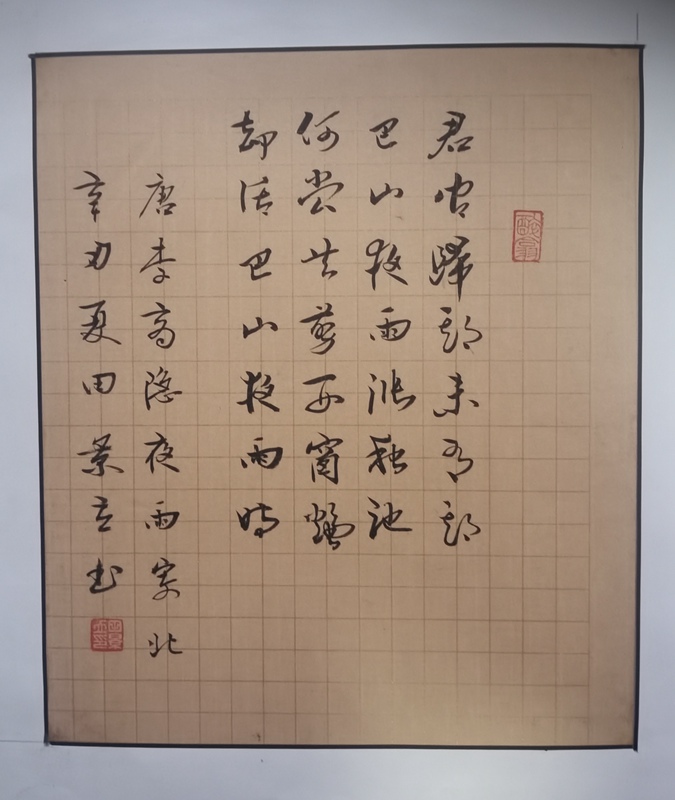 君问歸期未有期
巴山夜雨漲秋池
何當共剪西窗燭
却話巴山夜雨時
唐李商隐夜雨寄北
辛丑夏田景立书